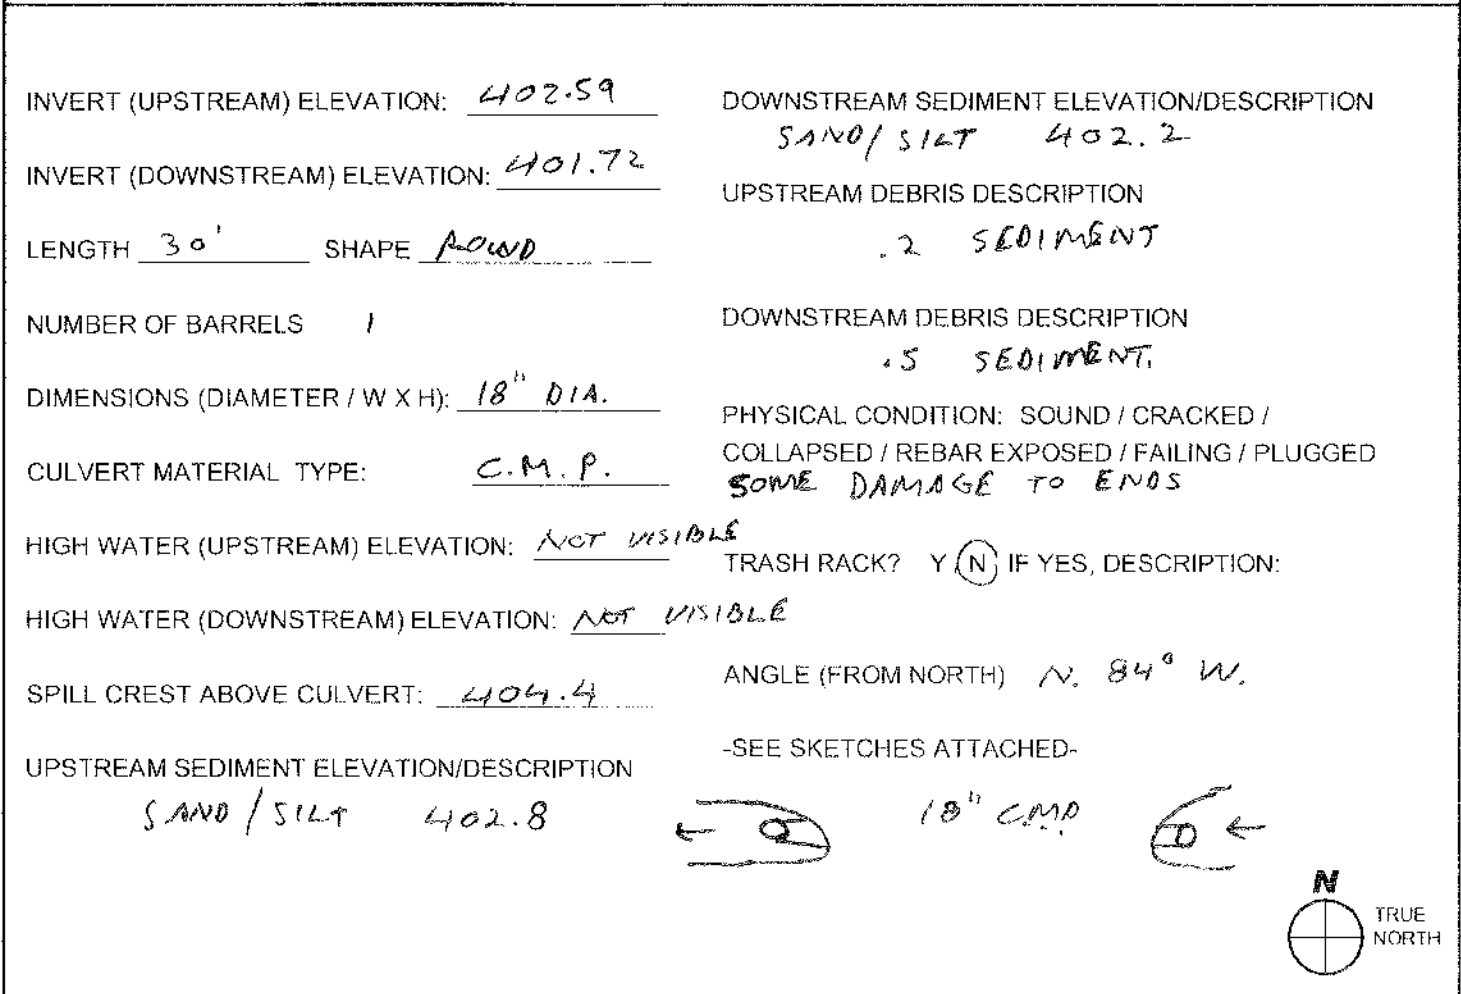 INVERT (UPSTREAM) ELEVATION: 402.59
INVERT (DOWNSTREAM) ELEVATION: 401.72
LENGTH 30' SHAPE ROUND
NUMBER OF BARRELS 1
DIMENSIONS (DIAMETER / W X H): 18" DIA.
CULVERT MATERIAL TYPE: C.M.P.
HIGH WATER (UPSTREAM) ELEVATION: NOT VISIBLE
HIGH WATER (DOWNSTREAM) ELEVATION: NOT VISIBLE
SPILL CREST ABOVE CULVERT: 404.4
UPSTREAM SEDIMENT ELEVATION/DESCRIPTION
SAND/SILT 402.8
DOWNSTREAM SEDIMENT ELEVATION/DESCRIPTION
SAND/SILT 402.2
UPSTREAM DEBRIS DESCRIPTION
.2 SEDIMENT
DOWNSTREAM DEBRIS DESCRIPTION
.5 SEDIMENT.
PHYSICAL CONDITION: SOUND / CRACKED /
COLLAPSED / REBAR EXPOSED / FAILING / PLUGGED
SOME DAMAGE TO ENDS
TRASH RACK? Y N IF YES, DESCRIPTION:
ANGLE (FROM NORTH) N. 84° W.
-SEE SKETCHES ATTACHED-
18" C.M.P.
N
TRUE
NORTH